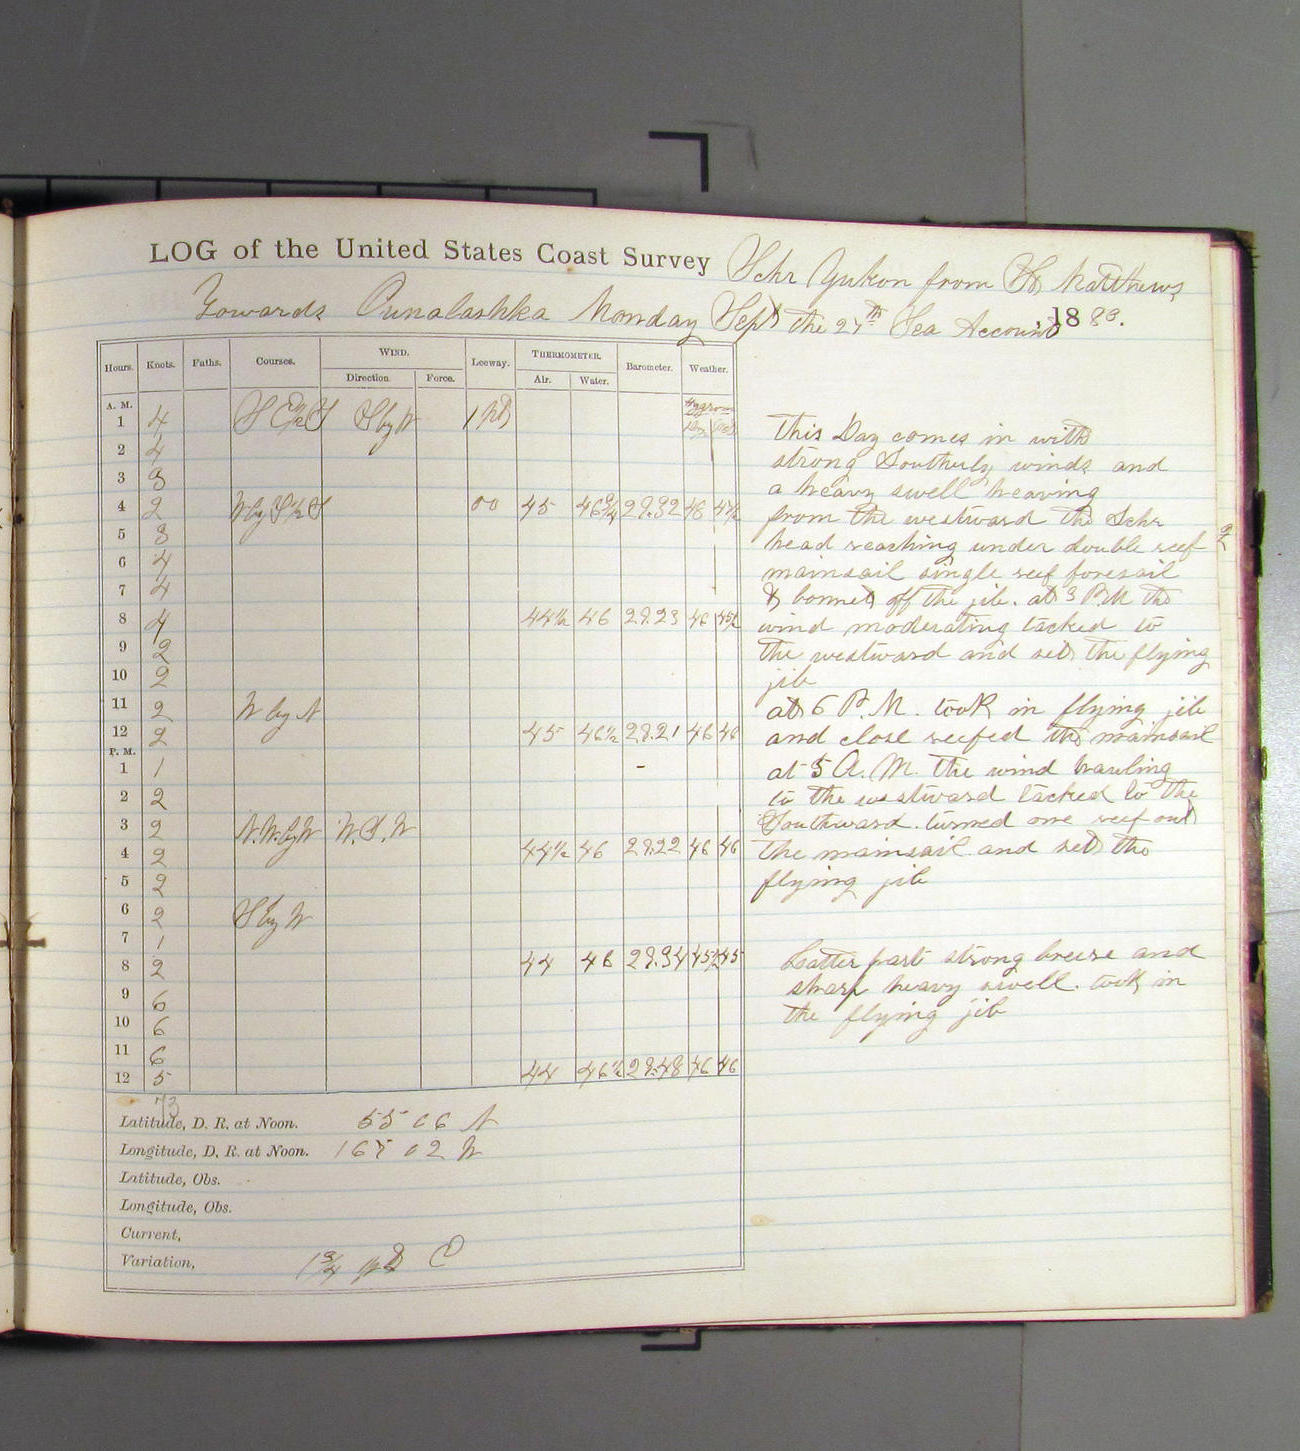 LOG of the United States Coast Survey Schr Yukon from St Matthews
Towards Ounalashka Monday Sept the 27th Sea Account 1880.
Hours. Knots. Faths. Courses. WIND. Leeway. THERMOMETER. Barometer. Weather.
Direction. Force. Air. Water.
A. M.
1 4 S E 1/2 S S by W 1 pt
2 4
3 3
4 2 W by S 1/2 S 00 45 46 3/4 29.32 46
5 3
6 4
7 4
8 4 44 1/2 46 29.23 46 45 1/2
9 2
10 2
11 2 W by N
12 2 45 46 1/2 29.21 46 46
P. M.
1 1 -
2 2
3 2 N.W. by W W.S.W
4 2 44 1/2 46 29.22 46 46
5 2
6 2 S by W
7 1
8 2 44 46 29.34 45 1/2 45
9 6
10 6
11 6
12 5 44 46 1/2 29.48 46 46
73
Latitude, D. R. at Noon. 55 06 N
Longitude, D. R. at Noon. 02 W
Latitude, Obs.
Longitude, Obs.
Current,
Variation, 1 3/4 pt E
This Day comes in with
strong Southerly winds and
a heavy swell heaving
from the westward the Schr
head reaching under double reef
mainsail single reef foresail
& bonnet off the jib. at 3 P.M the
wind moderating tacked to
the westward and set the flying
jib
at 6 P.M. took in flying jib
and close reefed the mainsail
at 5 A.M. the wind hauling
to the westward tacked to the
Southward. turned one reef out
the mainsail and set the
flying jib
Latter part strong breeze and
sharp heavy swell. took in
the flying jib